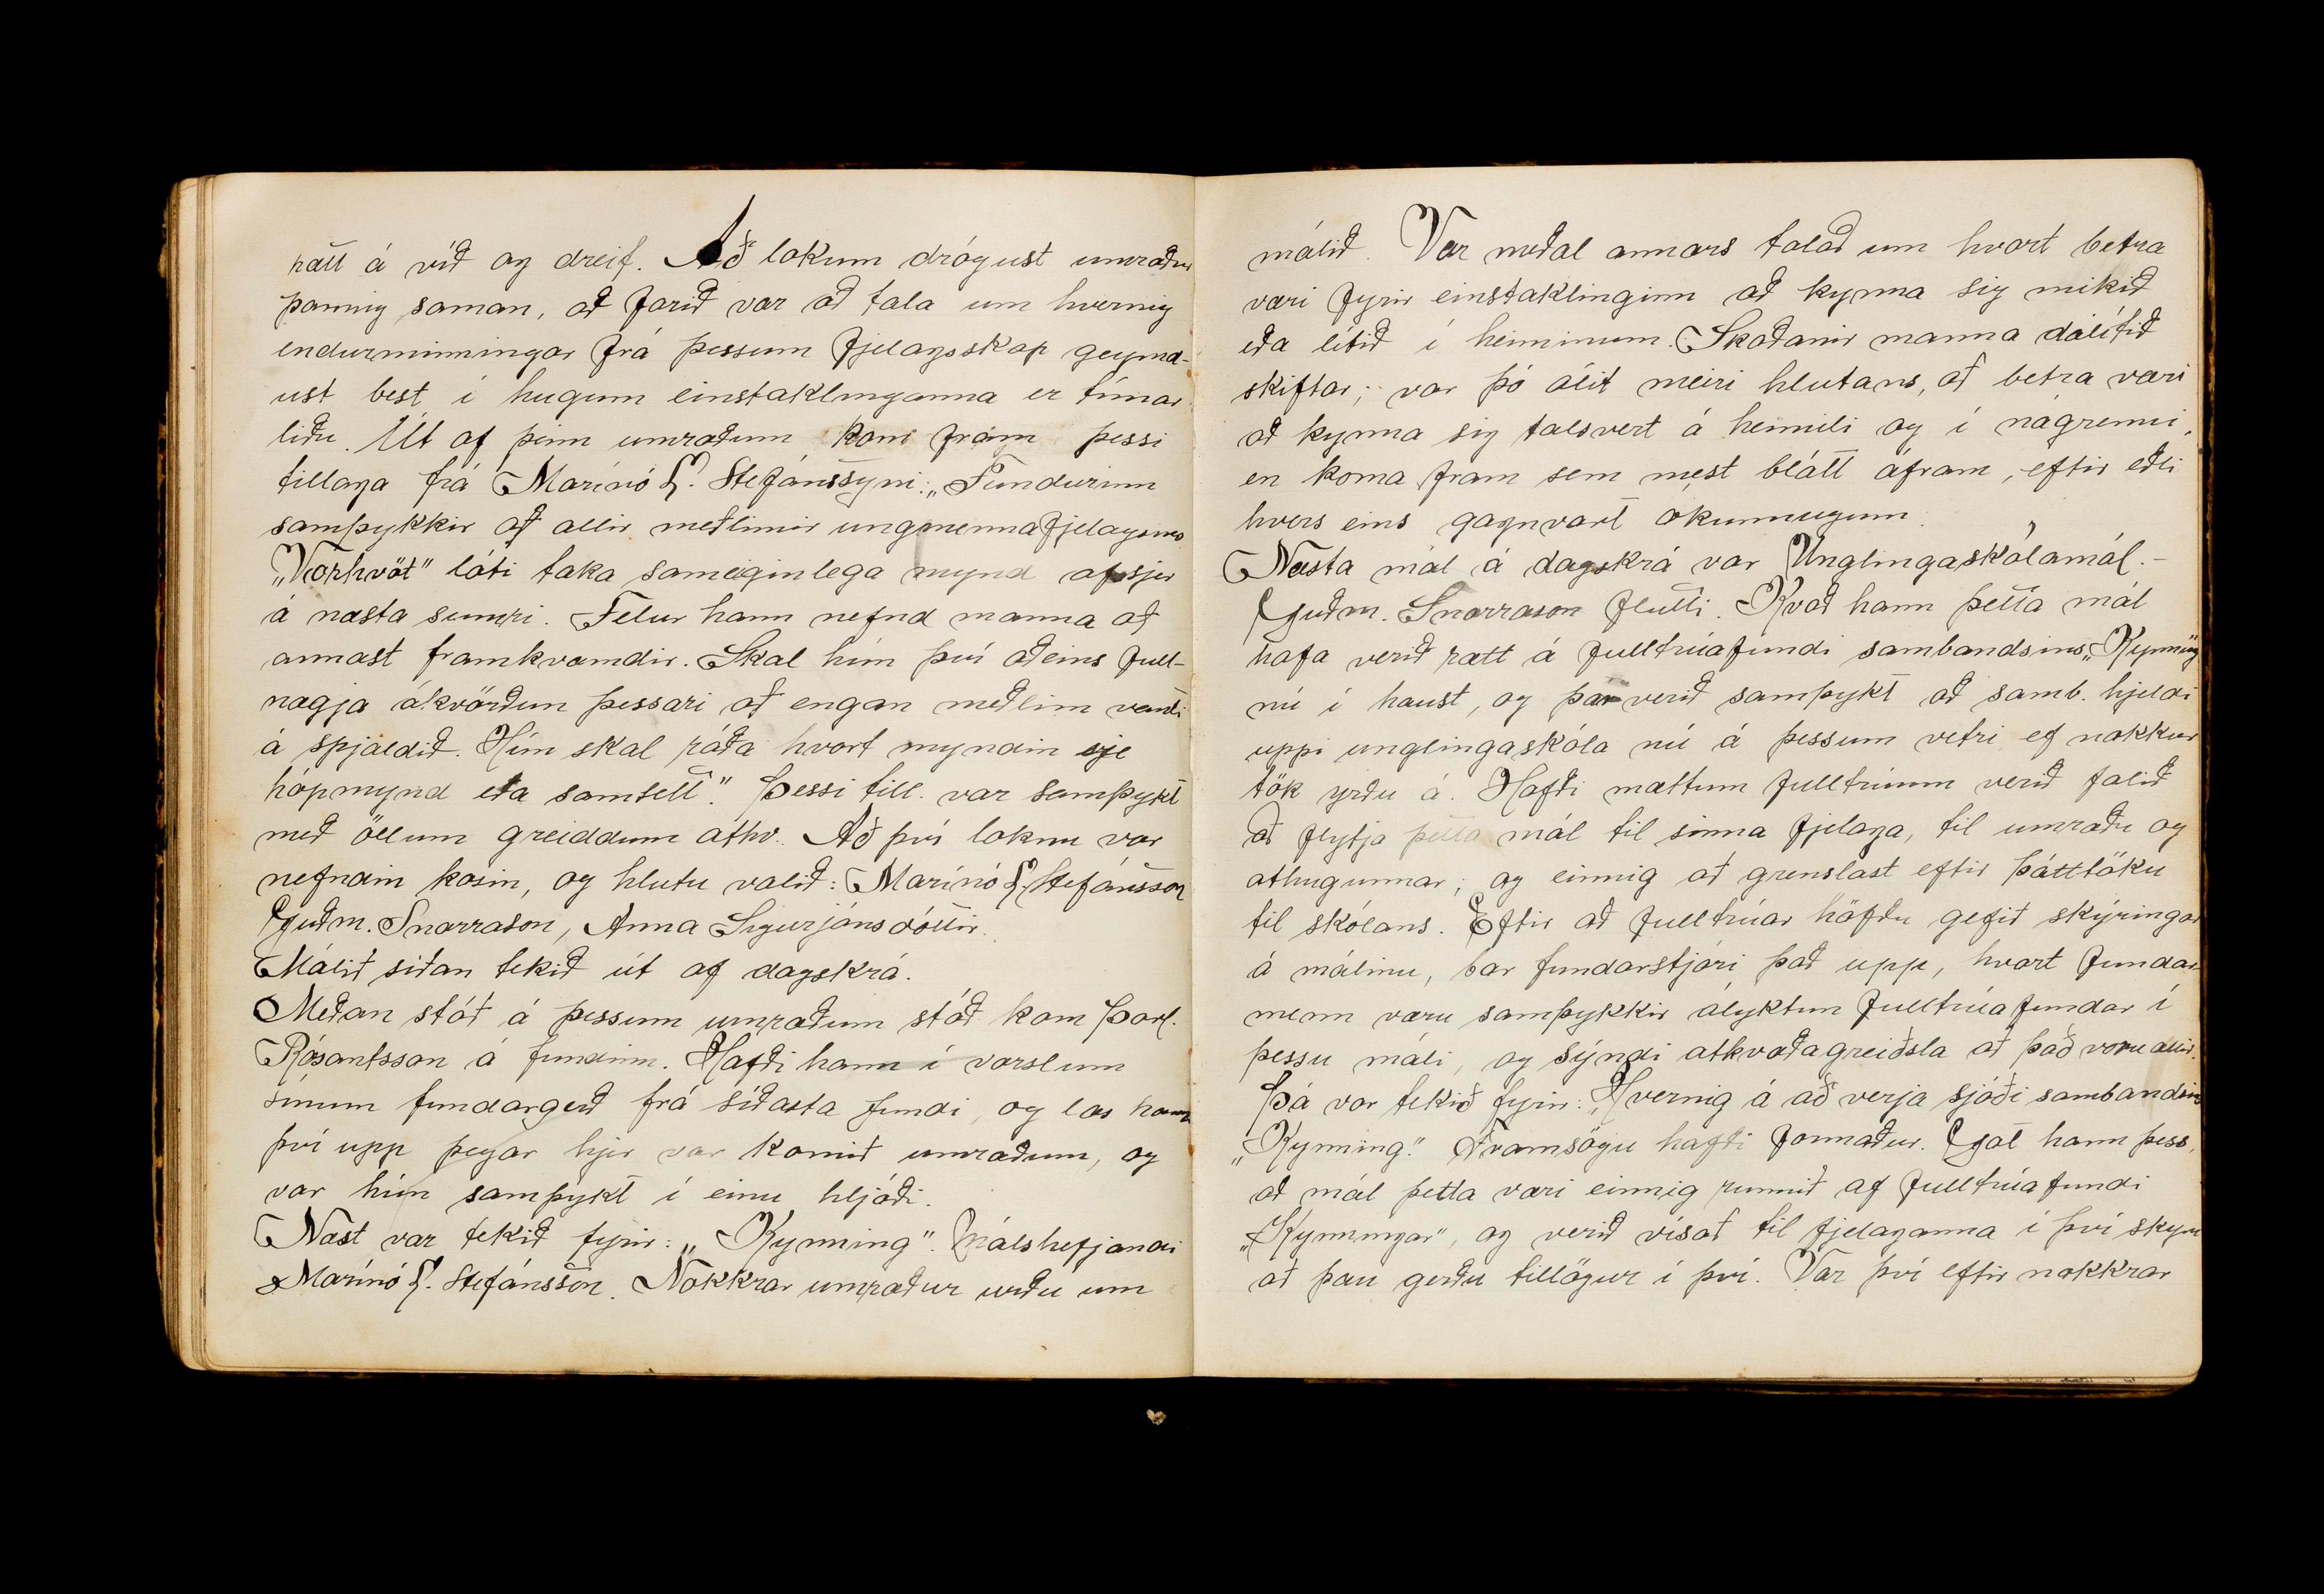 rætt á víð og dreif. Að lokum drógust umræður
þannig saman, að farið var að tala um hvernig
endurminningar frá þessum fjelagsskap geymd-
ust best í hugum einstaklinganna er tímar
liðu. Út af þeim umræðum kom fram þessi
tillaga frá Marínó L. Stefánssyni: „Fundurinn
samþykkir að allir meðlimir ungmennafjelagsins
„Vorhvöt" láti taka sameiginlega mynd af sjer
á næsta sumri. Felur hann nefnd manna að
annast framkvæmdir. Skal hún því aðeins full-
nægja ákvörðun þessari að engan meðlim vanti
á spjaldið. Hún skal ráða hvort myndin sje
hópmynd eða samsett." Þessi till. var samþykt
með öllum greiddum atkv. Að því loknu var
nefndin kosin, og hlutu valið: Marínó L. Stefánsson
Guðm. Snorrason, Anna Sigurjónsdóttir.
Málið síðan tekið út af dagskrá.
Meðan stóð á þessum umræðum stóð kom Þorl.
Rósantsson á fundinn. Hafði hann í vörslum
sínum fundargerð frá síðasta fundi, og las hann
því upp þegar hjer var komið umræðum, og
var hún samþykt í einu hljóði.
Næst var tekið fyrir: „Kynning". Málshefjandi
Marínó L. Stefánsson. Nokkrar umræður urðu um
málið. Var meðal annars talað um hvort betra
væri fyrir einstaklinginn að kynna sig mikið
eða lítið í heiminum. Skoðanir manna dálítið
skiftar; var þó álit meiri hlutans, að betra væri
að kynna sig talsvert á heimili og í nágrenni,
en koma fram sem mest blátt áfram, eftir eðli
hvers eins gagnvart ókunnugum.
Næsta mál á dagskrá var Unglingaskólamál.-
Guðm. Snorrason flutti. Kvað hann þetta mál
hafa verið rætt á fulltrúafundi sambandsins „Kynning
nú í haust, og þar verið samþykt að samb. hjeldi
uppi unglingaskóla nú á þessum vetri ef nokkur
tök yrðu á. Hafði mættum fulltrúum verið falið
að flytja þetta mál til sinna fjelaga, til umræðu og
athugunnar; og einnig að grenslast eftir þátttöku
til skólans. Eftir að fulltrúar höfðu gefið skýringar
á málinu, bar fundarstjóri það upp, hvort fundar-
menn væru samþykkir ályktun fulltrúafundar í
þessu máli, og sýndi atkvæðagreiðsla að það voru allir.
Þá var tekið fyrir: „Hvernig á að verja sjóði sambandsins
„Kynning." Framsögu hafði formaður. Gat hann þess,
að mál þetta væri einnig runnið af fulltrúafundi
„Kynningar", og verið vísað til fjelaganna í því skyni
að þau gerðu tillögur í því. Var því eftir nokkrar